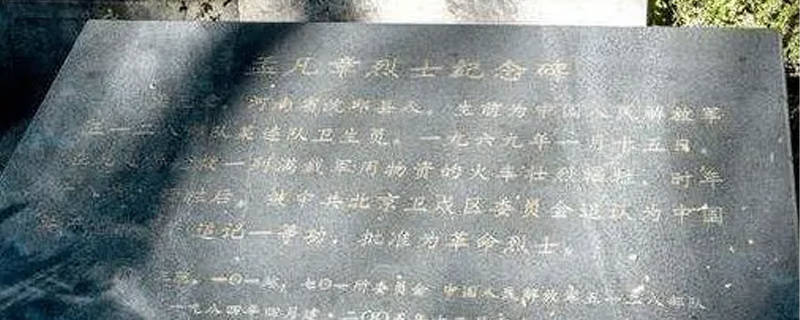 孟凡章烈士纪念碑
河南省沈邱县人。生前为中国人民解放军
五一二八部队某连队卫生员。一九六九年一月十五日
一列满载军用物资的火车壮烈牺牲。时年
牲后,被中共北京卫戍区委员会追认为中国
追记一等功,批准为革命烈士。
一〇一站,七〇一所委员会 中国人民解放军五一二八部队
一九八四年四月建·二〇〇五年十